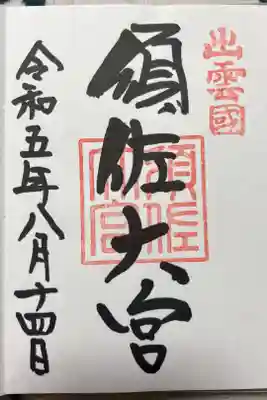 出雲國
須佐大宮
須佐大宮
令和五年八月十四日